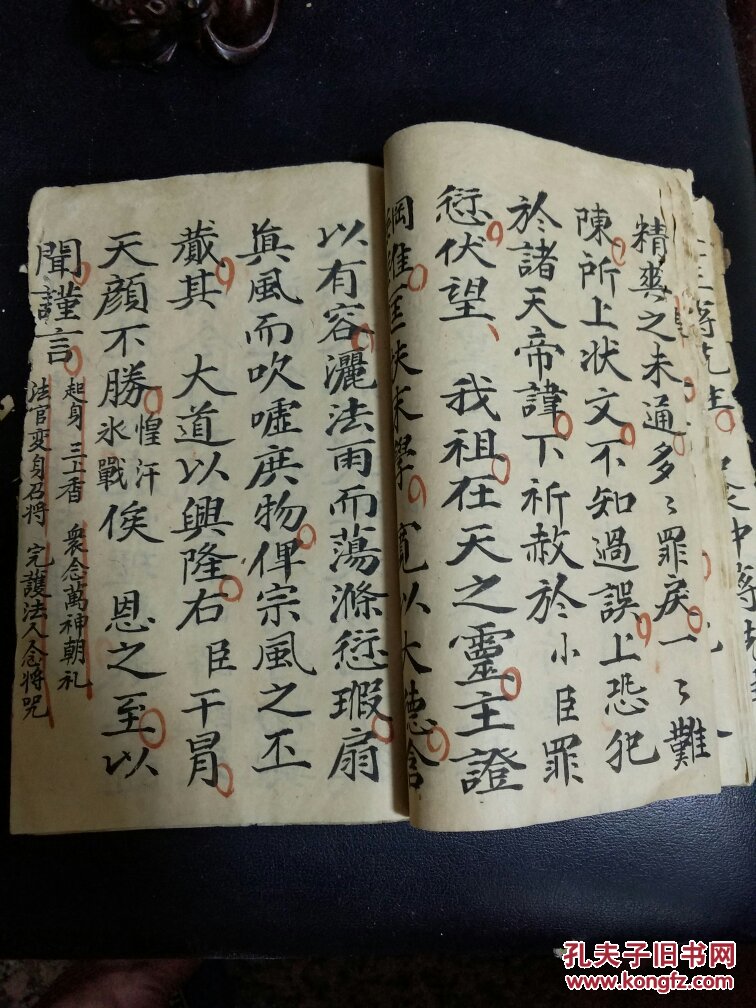 精爽之未通多〻罪戾一〻難
陳所上状文不知過誤上恐犯
於諸天帝諱下祈赦於小臣罪
愆伏望我祖在天之靈主證
綱維匡扶末學寬以大德含
以有容灑法雨而蕩滌愆瑕扇
真風而吹噓庶物俾宗風之丕
蕆其大道以興隆右臣干冐
天顔不勝惶汗氷戰俟恩之至以
聞謹言
起身三上香衆念萬神朝礼
法官变身召将完護法入念将咒
孔夫子旧书网
www.kongfz.com